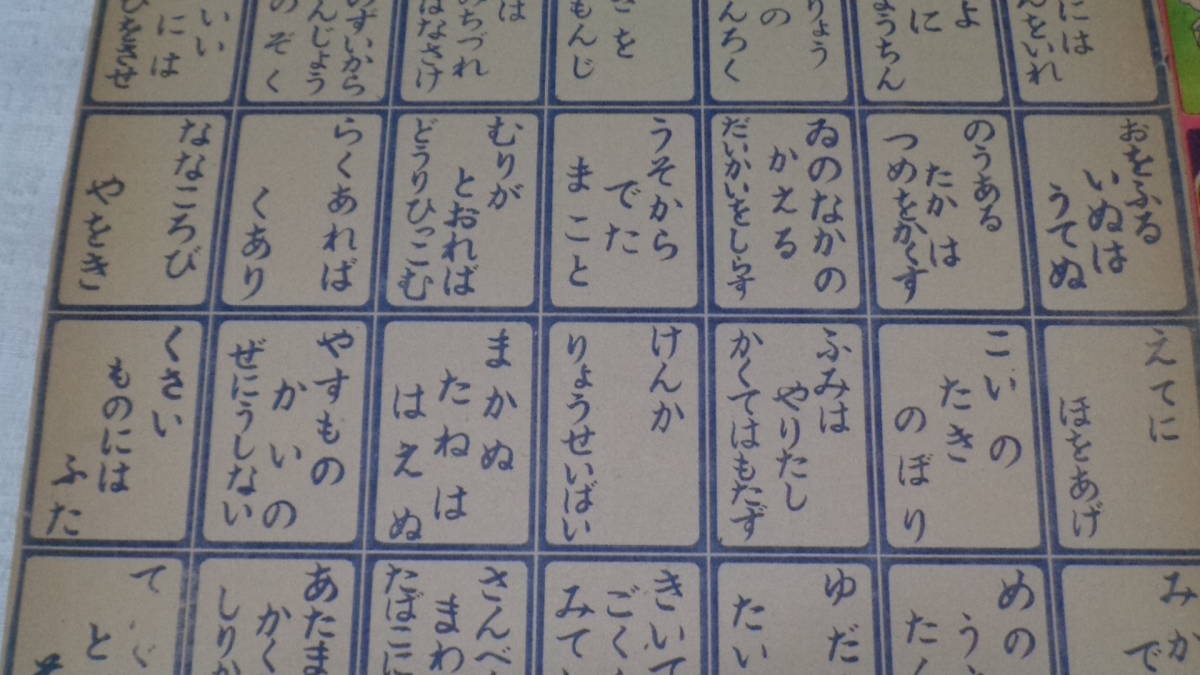 には
んをいれ
よ
に
ようちん
りょう
の
んろく
を
もんじ
は
みちづれ
はなさけ
のずいから
んじょう
のぞく
いい
には
ひをきせ
おをふる
いぬは
うてぬ
のうある
たかは
つめをかくす
ゐのなかの
かえる
だいかいをしらず
うそから
でた
まこと
むりが
とおれば
どうりひっこむ
らくあれば
くあり
ななころび
やをき
えてに
ほをあげ
こいの
たき
のぼり
ふみは
やりたし
かくてはもたず
けんか
りょうせいばい
まかぬ
たねは
はえぬ
やすもの
かいの
ぜにうしない
くさい
ものには
ふた
みか
で
めの
うえ
た
ゆだ
たい
きいて
ごく
みて
さんべ
まわ
たばこに
あたま
かく
しりか
て
と